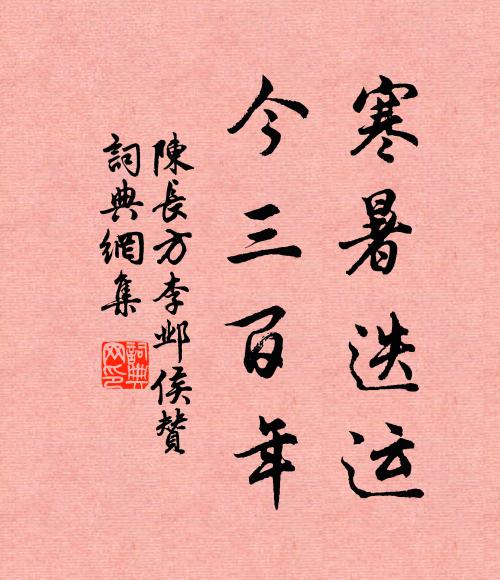 寒暑迭运
今三百年
陳長方李邺侯贊
詞典網集
詞典网印